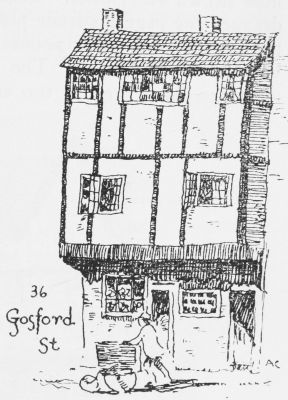 36
Gosford
St
AC